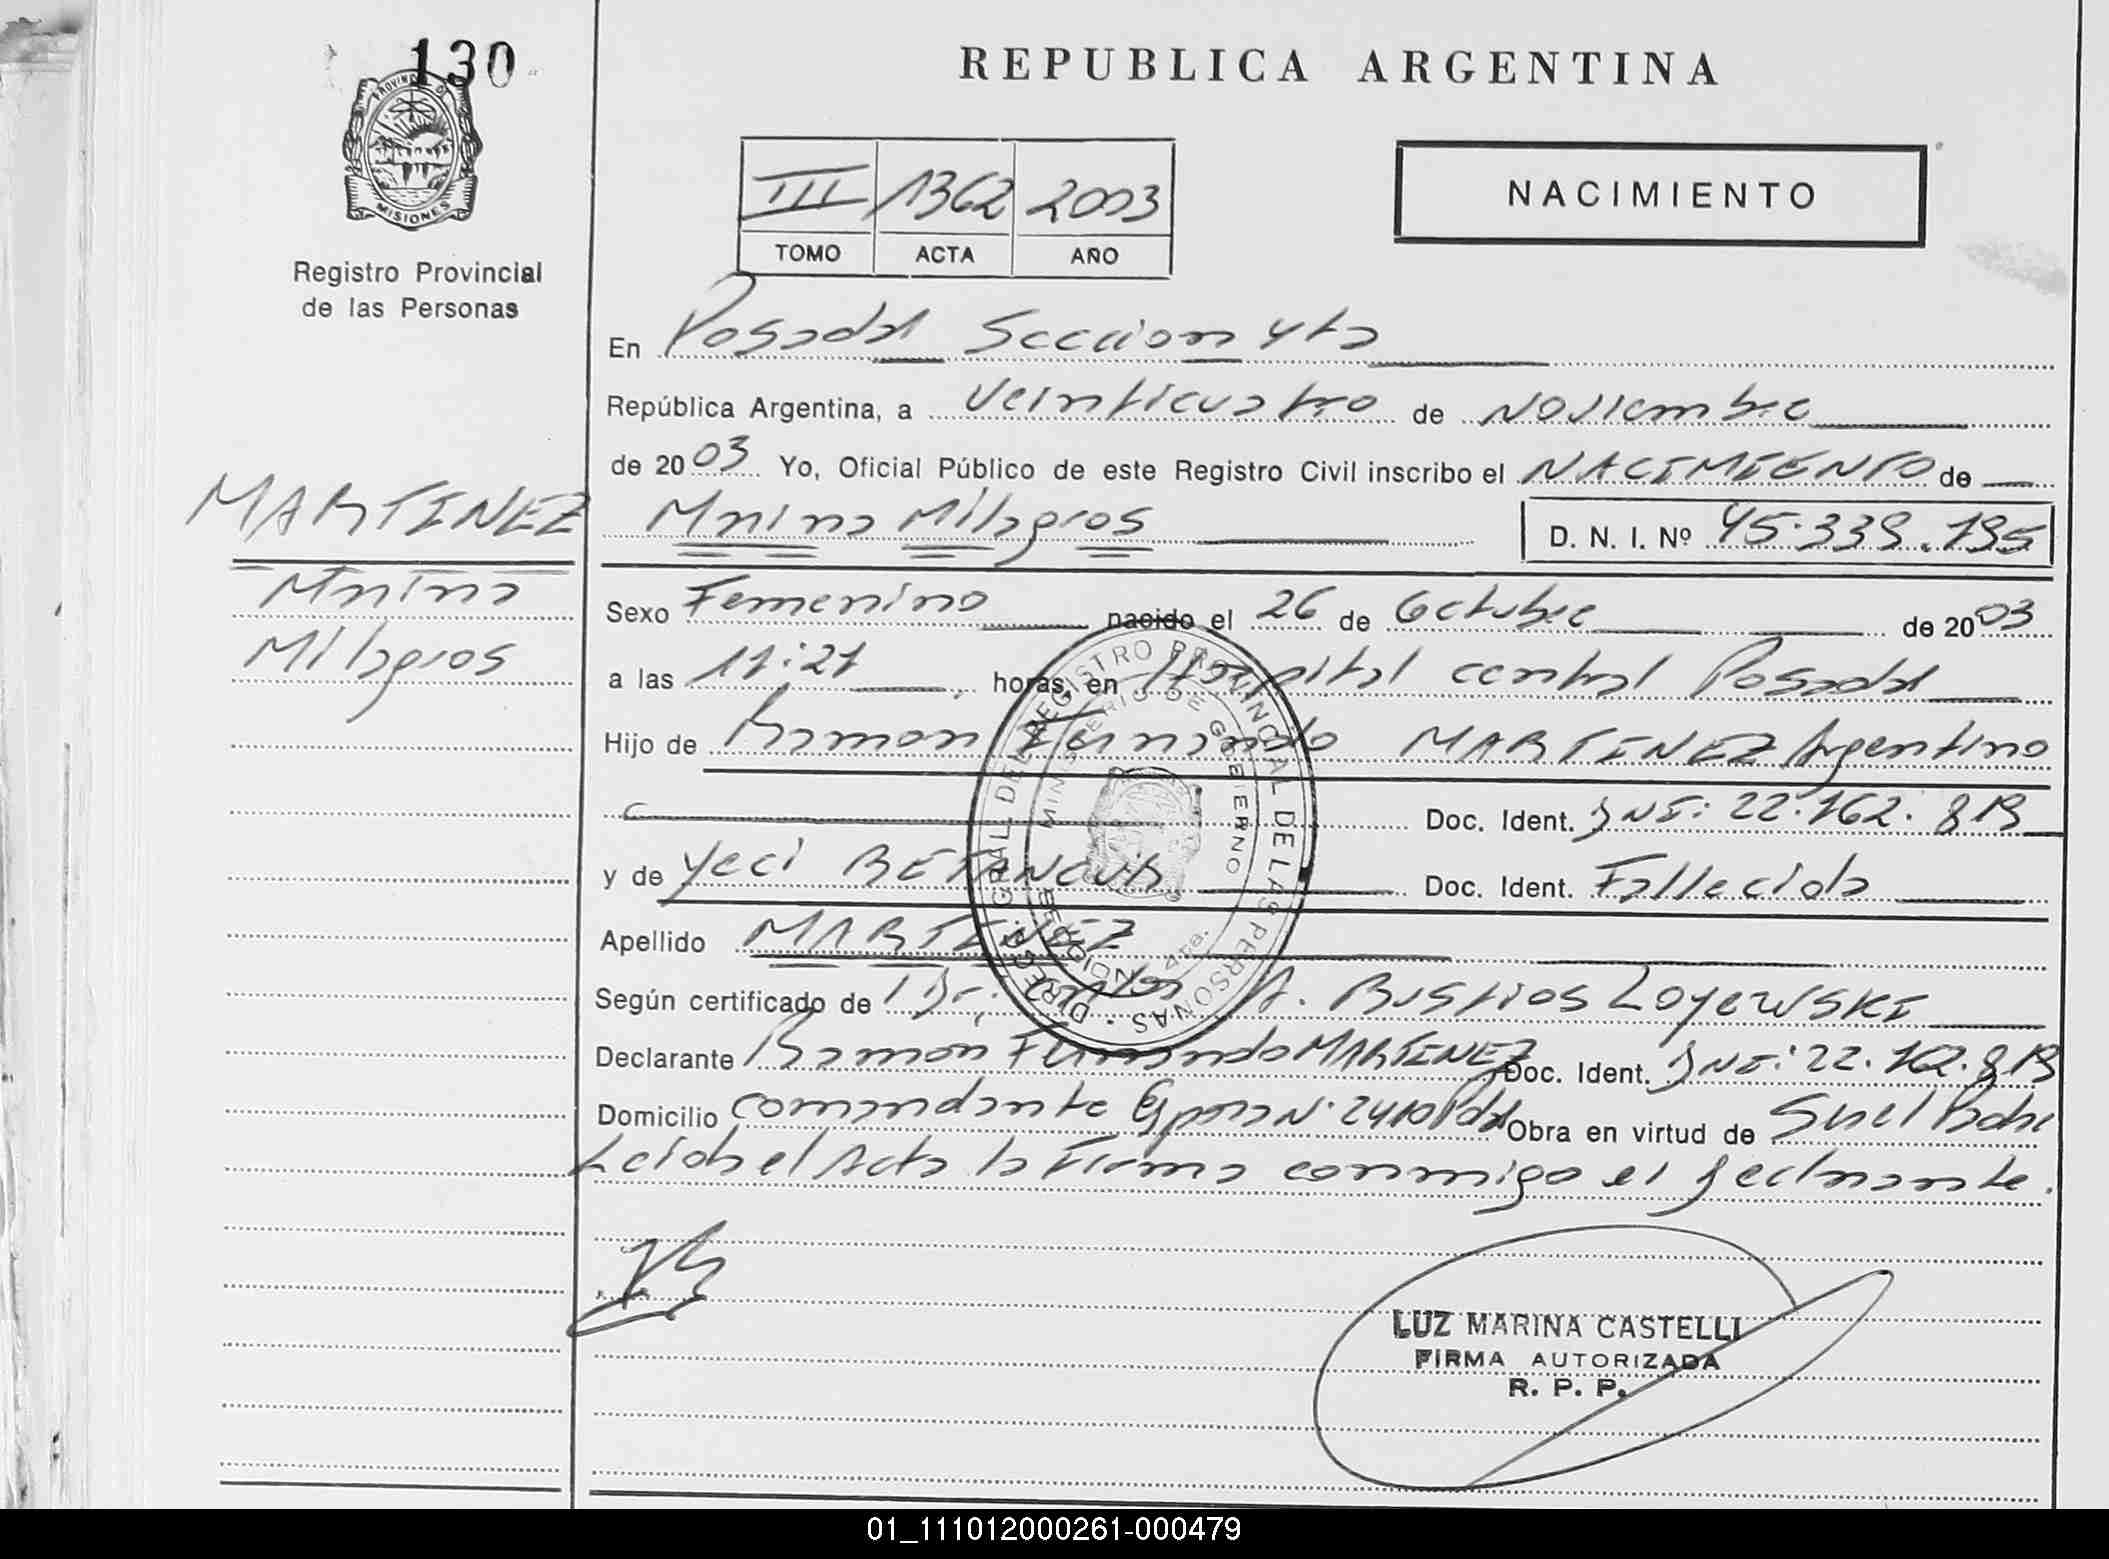 130
PROVINCIA DE
MISIONES
Registro Provincial
de las Personas
MARTINEZ
Milagros
REPUBLICA ARGENTINA
III 1362 2003
TOMO ACTA AÑO
NACIMIENTO
En Posadas Seccion 4ta
República Argentina, a veinticuatro de Noviembre
de 2003 Yo, Oficial Público de este Registro Civil inscribo el NACIMIENTO de
Milagros D. N. I. Nº 45.339.195
Sexo Femenino nacido el 26 de Octubre de 2003
a las 11:21 horas, en Hospital central Posadas
Hijo de Ramon Fernando MARTINEZ Argentino
Doc. Ident. DNI: 22.162.819
y de Yeci BETANCUR Doc. Ident. Fallecida
Apellido MARTINEZ
Según certificado de Dr. Carlos A. Bustios Loyewski
Declarante Ramon Fernando MARTINEZ Doc. Ident. DNI: 22.162.819
Domicilio Comandante Espora Nº 2410 Pdas Obra en virtud de
Leida el Acta la Firma conmigo el declarante.
DIREC. GRAL. DEL REGISTRO PROVINCIAL DE LAS PERSONAS
MINISTERIO DE GOBIERNO
4ta.
LUZ MARINA CASTELLI
FIRMA AUTORIZADA
R. P. P.
01_111012000261-000479